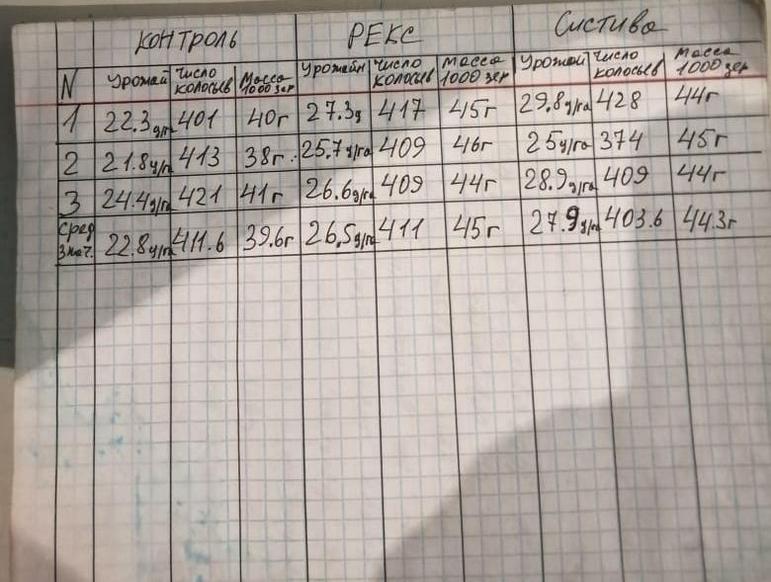 КОНТРОЛЬ РЕКС Систива
N Урожай Число колосьев Масса 1000 зер Урожайн Число колосьев Масса 1000 зер Урожай Число колосьев Масса 1000 зер
1 22.3ц/га 401 40г 27.3ц 417 45г 29.8ц/га 428 44г
2 21.8ц/га 413 38г 25.7ц/га 409 46г 25ц/га 374 45г
3 24.4ц/га 421 41г 26.6ц/га 409 44г 28.9ц/га 409 44г
сред знач. 22.8ц/га 411.6 39.6г 26.5ц/га 411 45г 27.9ц/га 403.6 44.3г